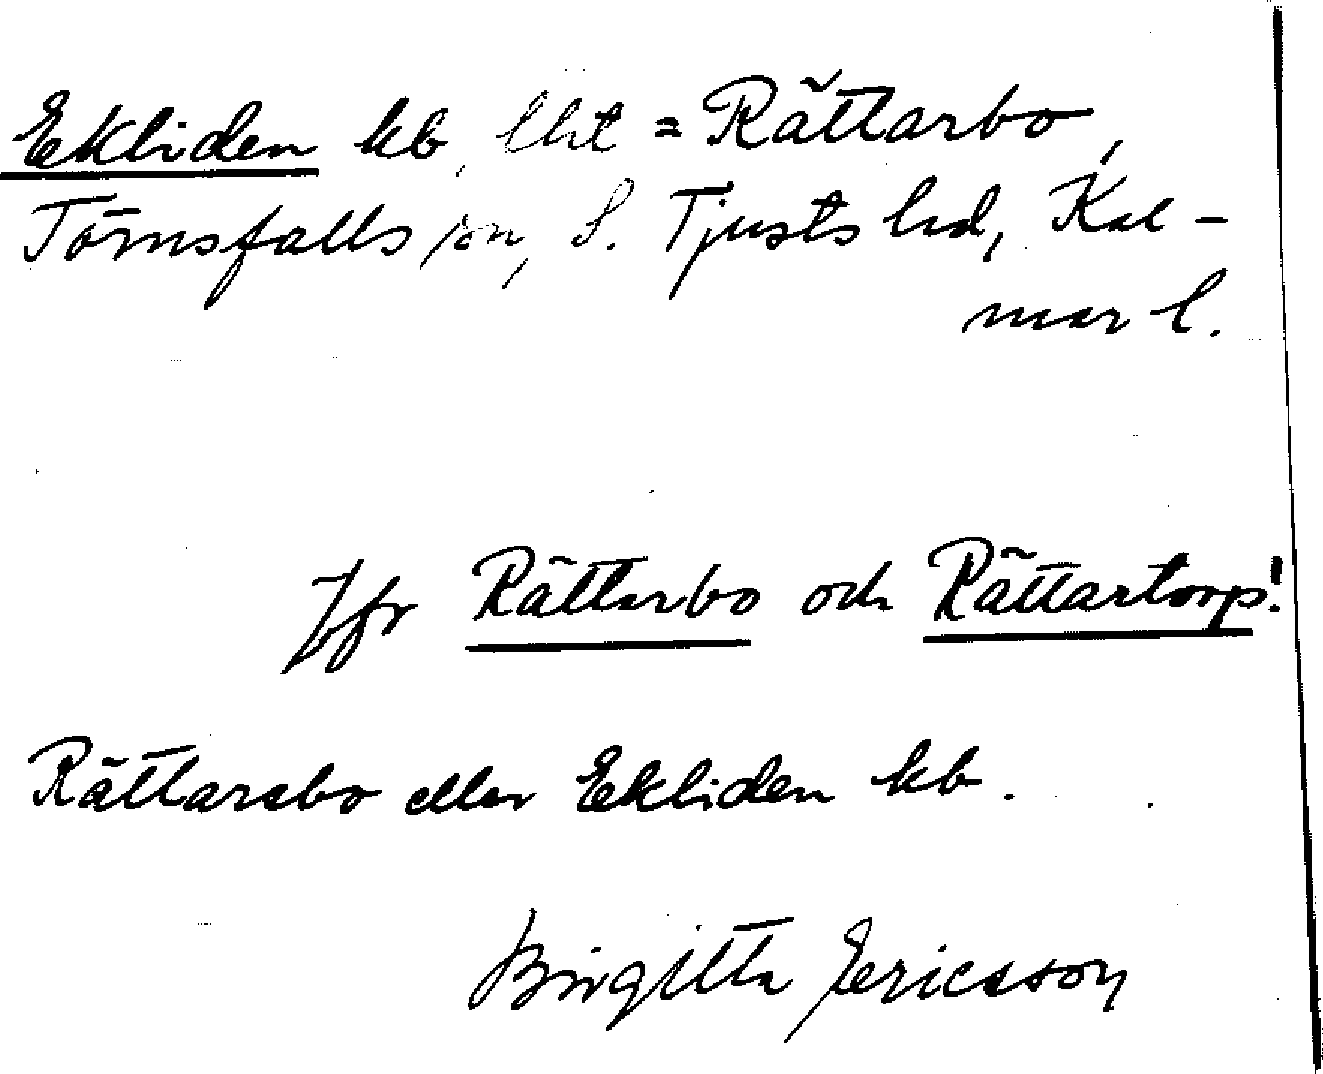 Ekliden kb, lht = Rättarbo,
Törnsfalls sn, S. Tjusts hd, Kal-
mar l.
Jfr Rättarbo och Rättartorp!
Rättarebo eller Ekliden kb.
Birgitta Ericsson